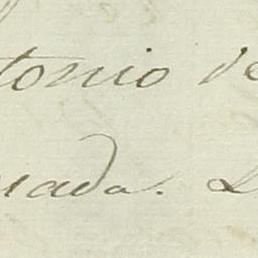 tonio de
uada. L